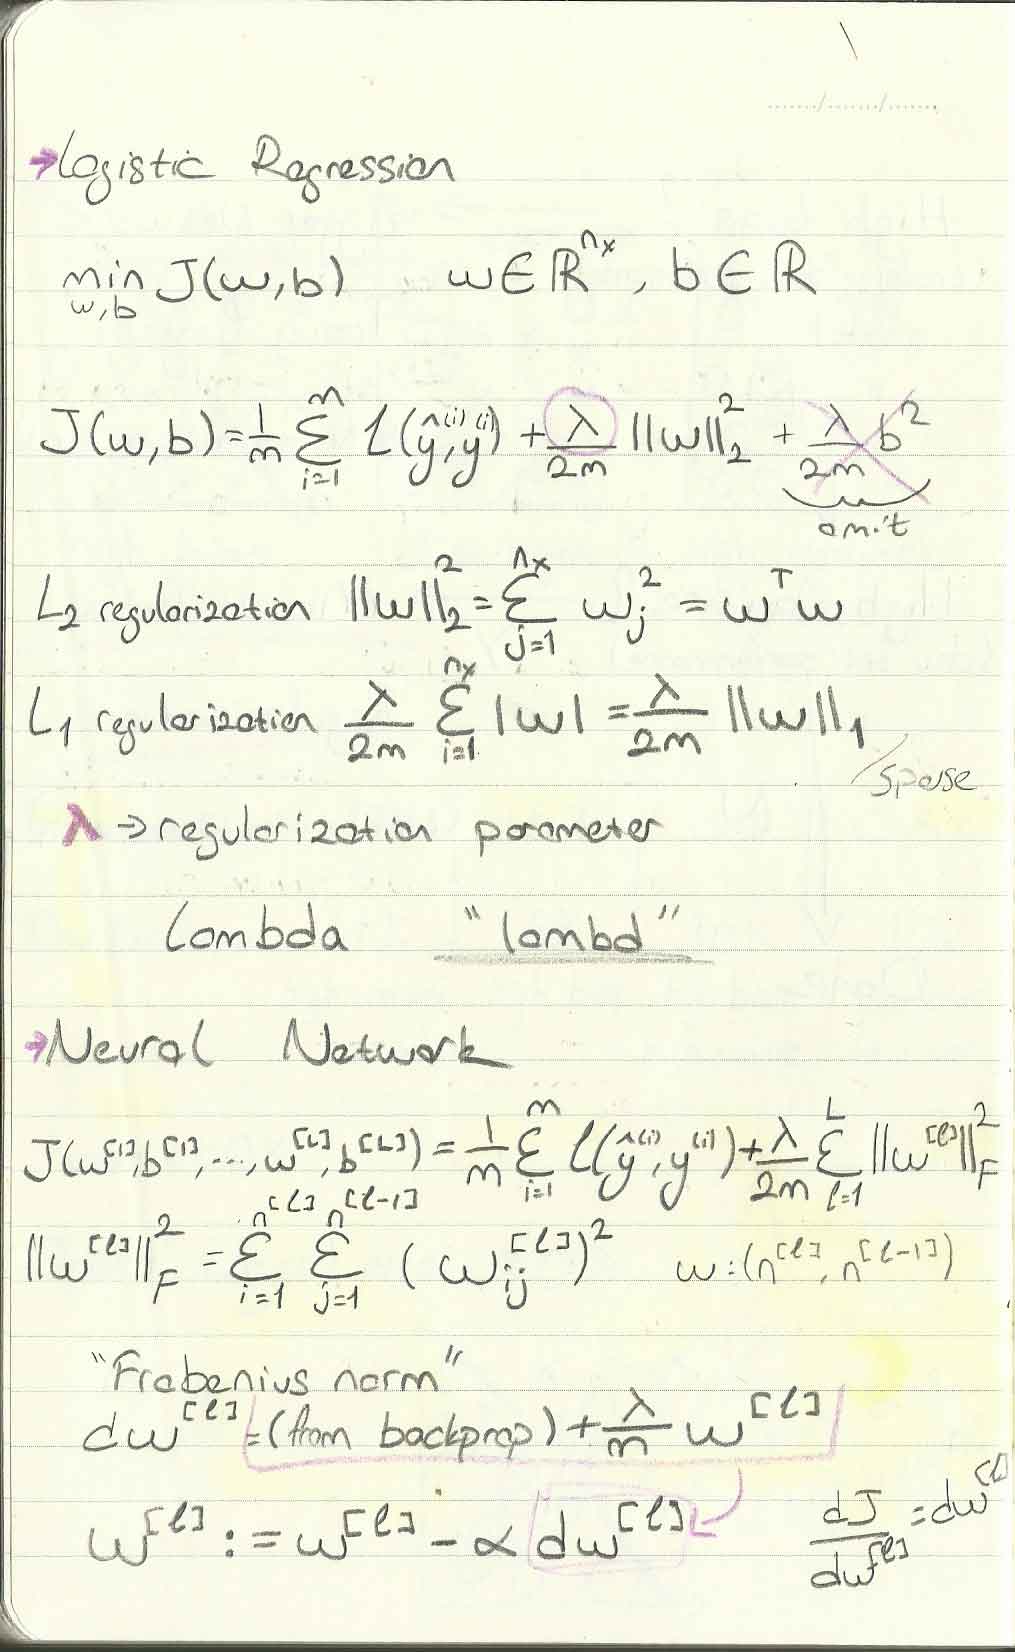 →Logistic Regression
min J(w,b) w∈ℝ^{n_x}, b∈ℝ
w,b
J(w,b)=\frac{1}{m} \sum_{i=1}^{m} L(ŷ^{(i)},y^{(i)}) + \frac{λ}{2m} ||w||_2^2 + \frac{λ}{2m} b^2
omit
L_2 regularization ||w||_2^2 = \sum_{j=1}^{n_x} w_j^2 = w^T w
L_1 regularization \frac{λ}{2m} \sum_{i=1}^{n_x} |w| = \frac{λ}{2m} ||w||_1
sparse
λ → regularization parameter
Lambda "lambd"
→Neural Network
J(w^{[1]},b^{[1]},...,w^{[L]},b^{[L]}) = \frac{1}{m} \sum_{i=1}^{m} l(ŷ^{(i)},y^{(i)}) + \frac{λ}{2m} \sum_{l=1}^{L} ||w^{[l]}||_F^2
||w^{[l]}||_F^2 = \sum_{i=1}^{n^{[l]}} \sum_{j=1}^{n^{[l-1]}} (w_{ij}^{[l]})^2 w:(n^{[l]},n^{[l-1]})
"Frobenius norm"
dw^{[l]} = (from backprop) + \frac{λ}{m} w^{[l]}
w^{[l]} := w^{[l]} - α dw^{[l]} \frac{dJ}{dw^{[l]}} = dw^{[l]}